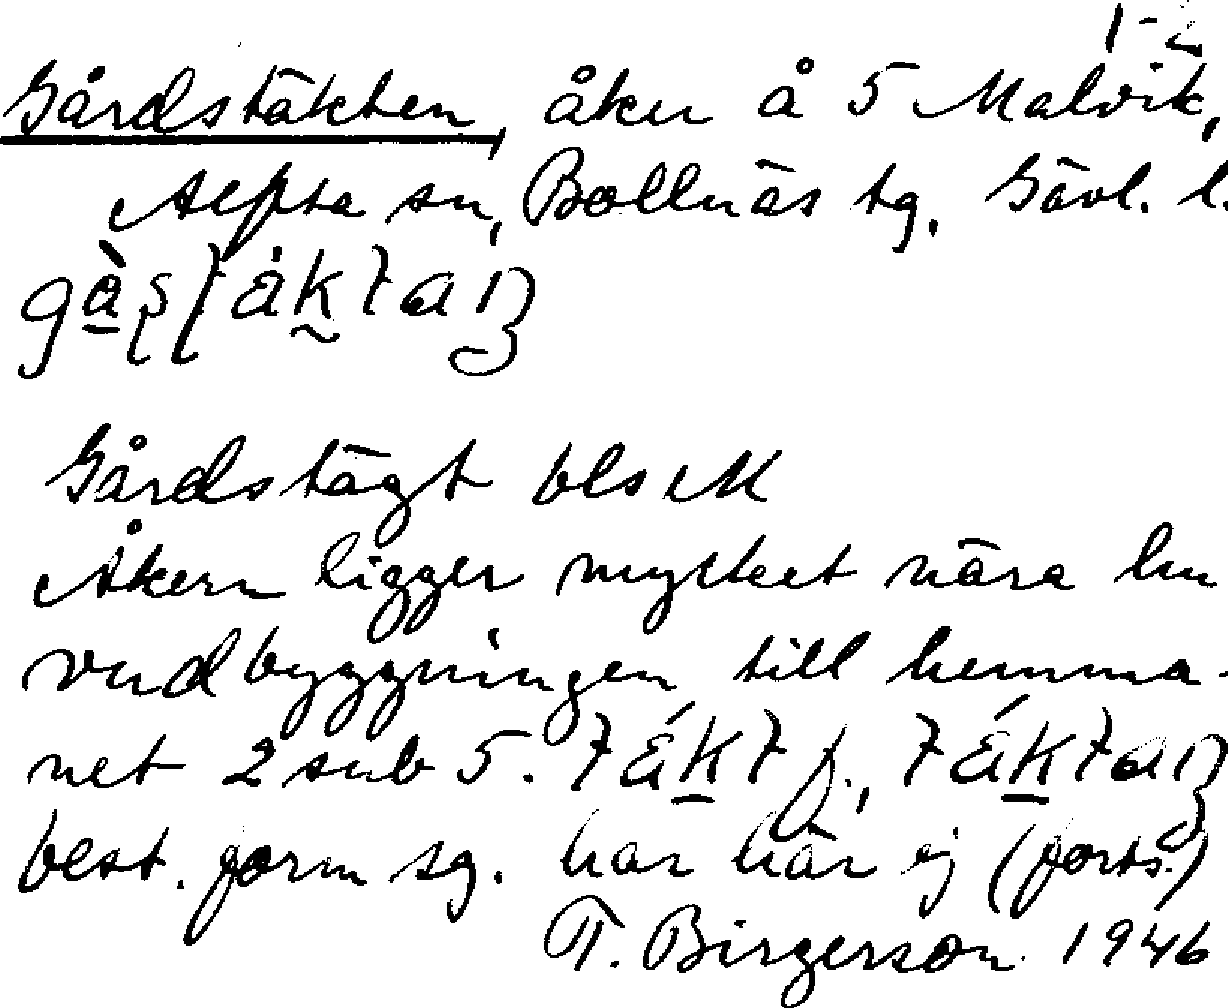 1-2
Gårdstäkten, åker å 5 Malvik,
Alfta sn, Bollnäs tg. Gävl. l.
Gårdstägt bls M
Åkern ligger mycket nära hu
vudbyggningen till hemma-
net 2 sub 5. f.,
best. form sg. har här ej (forts.)
T. Birgerson 1946